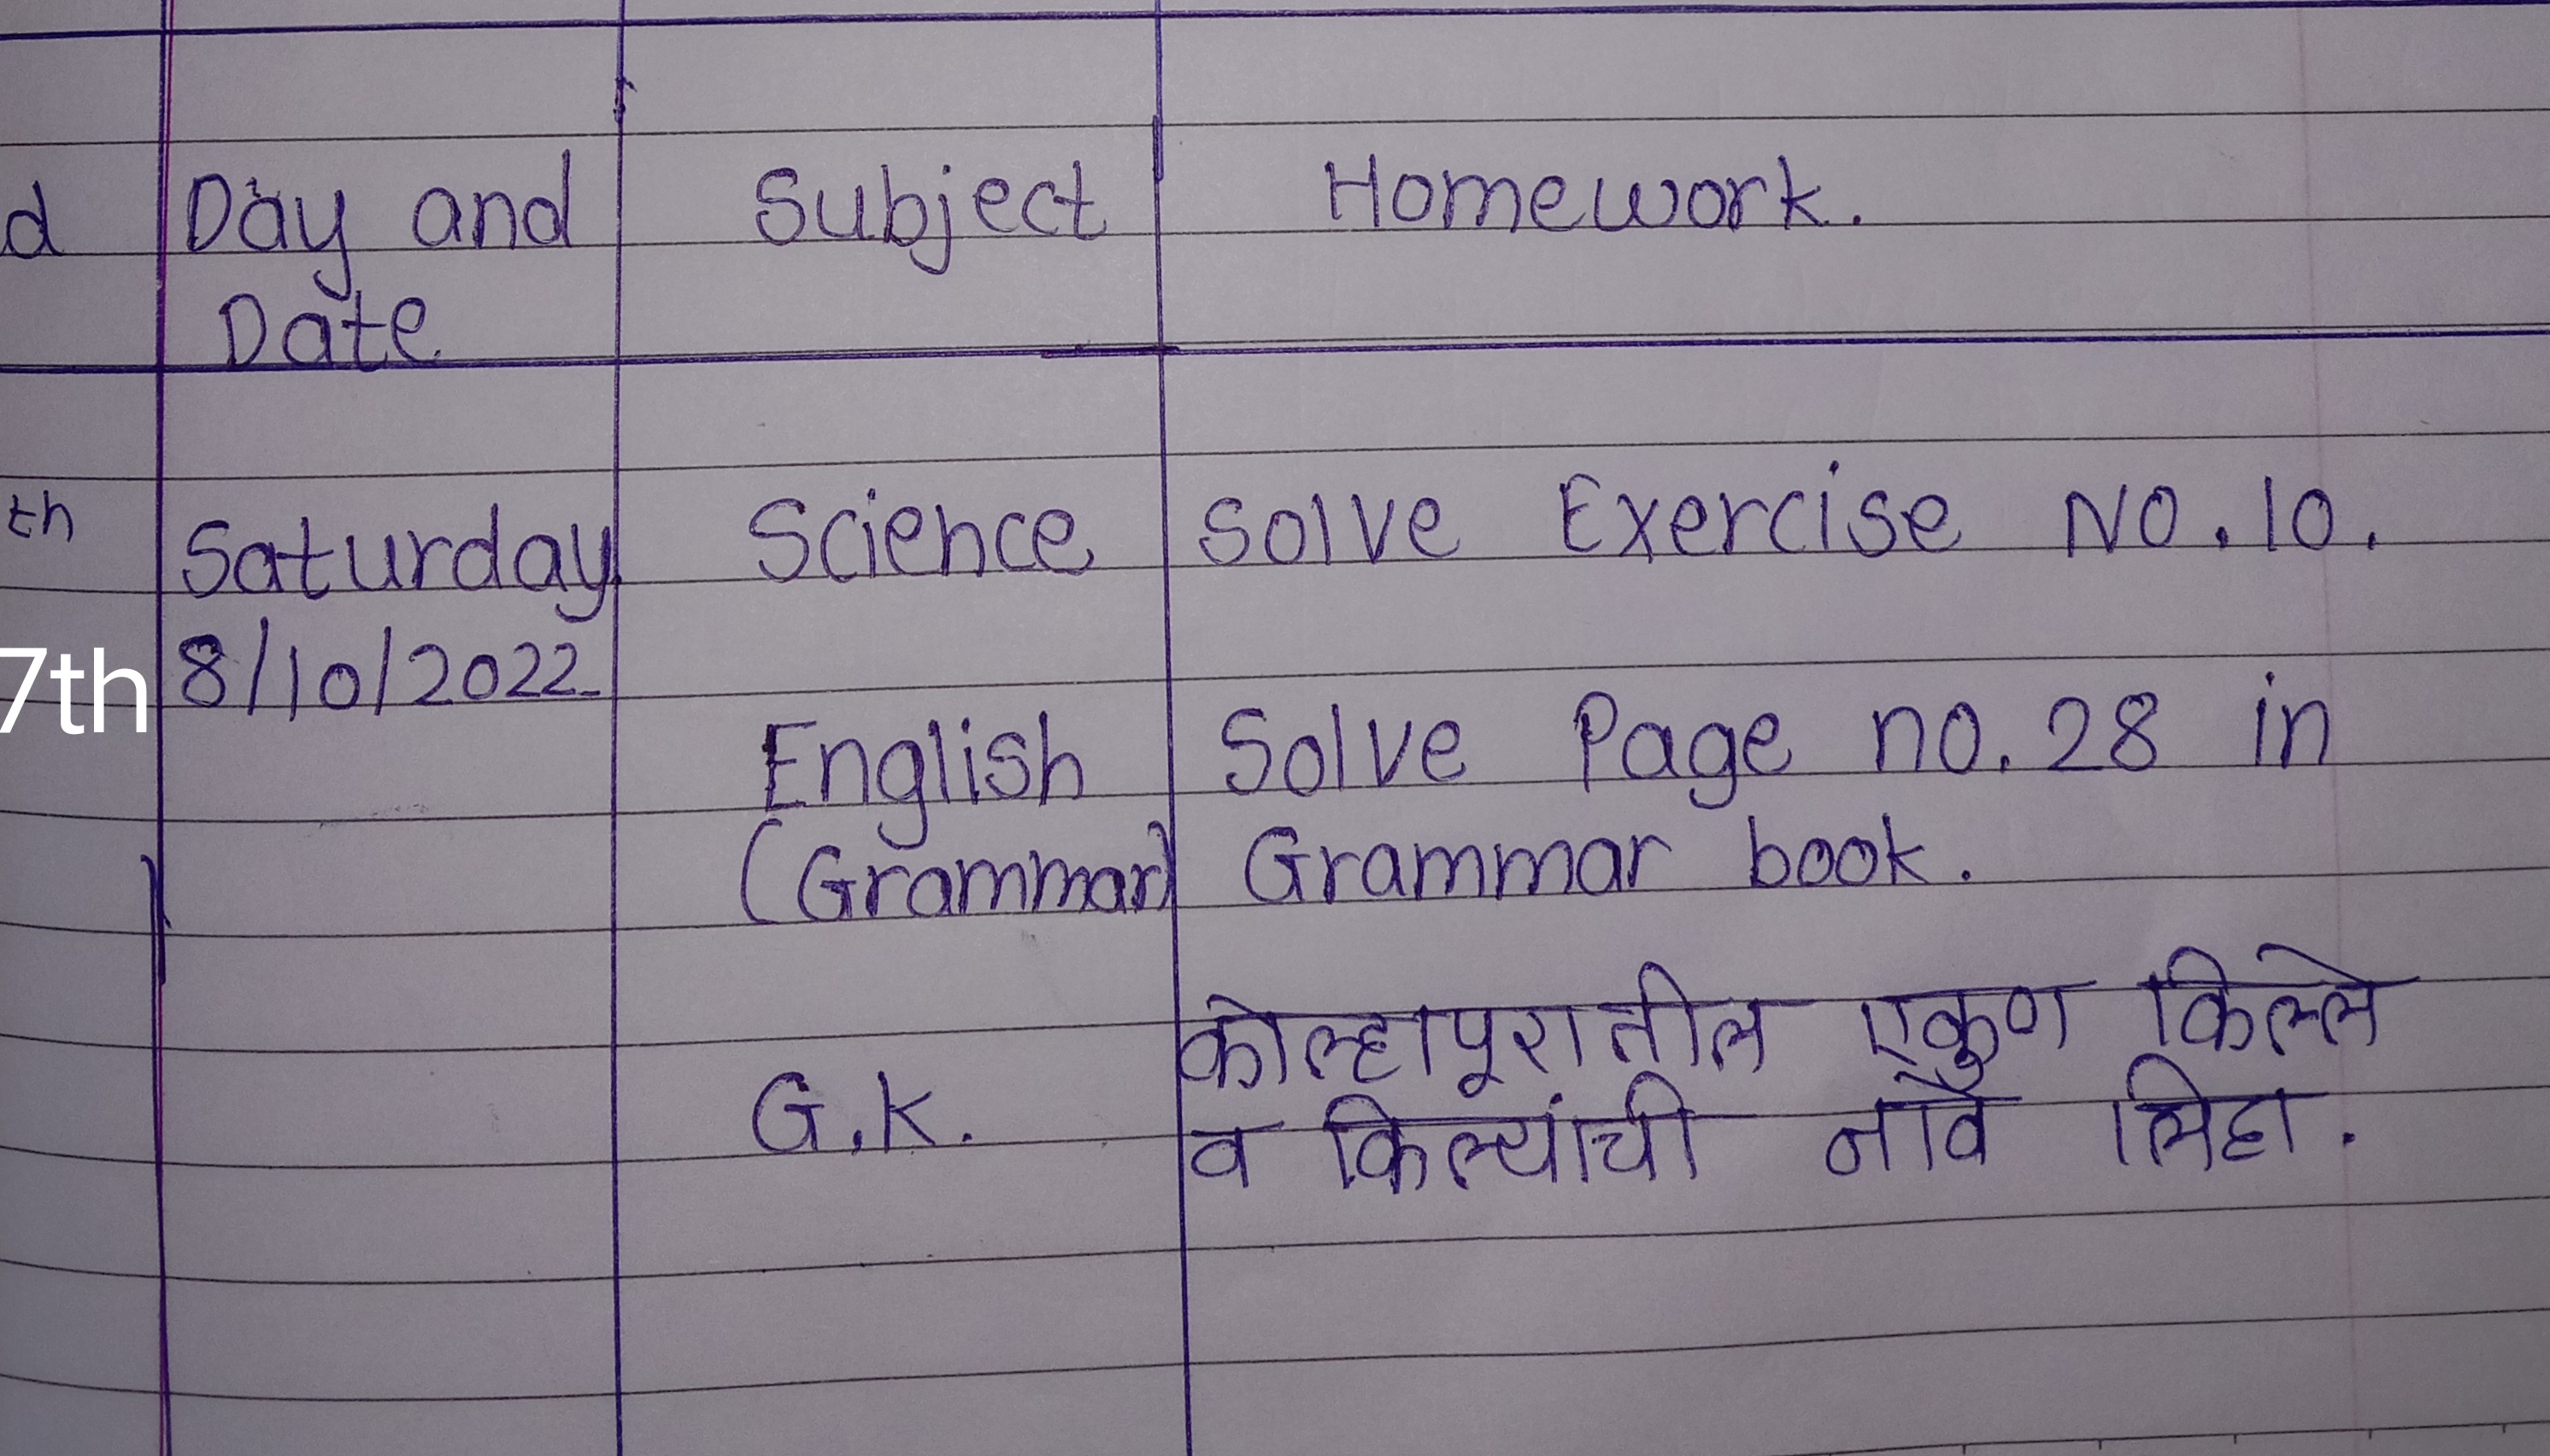 d Day and Subject Homework.
Date
th Saturday Science Solve Exercise NO.10.
7th 8/10/2022
English Solve Page no.28 in
(Grammar) Grammar book.
कोल्हापूरातील एकुण किल्ले
G.K.
व किल्यांची नावे लिहा.